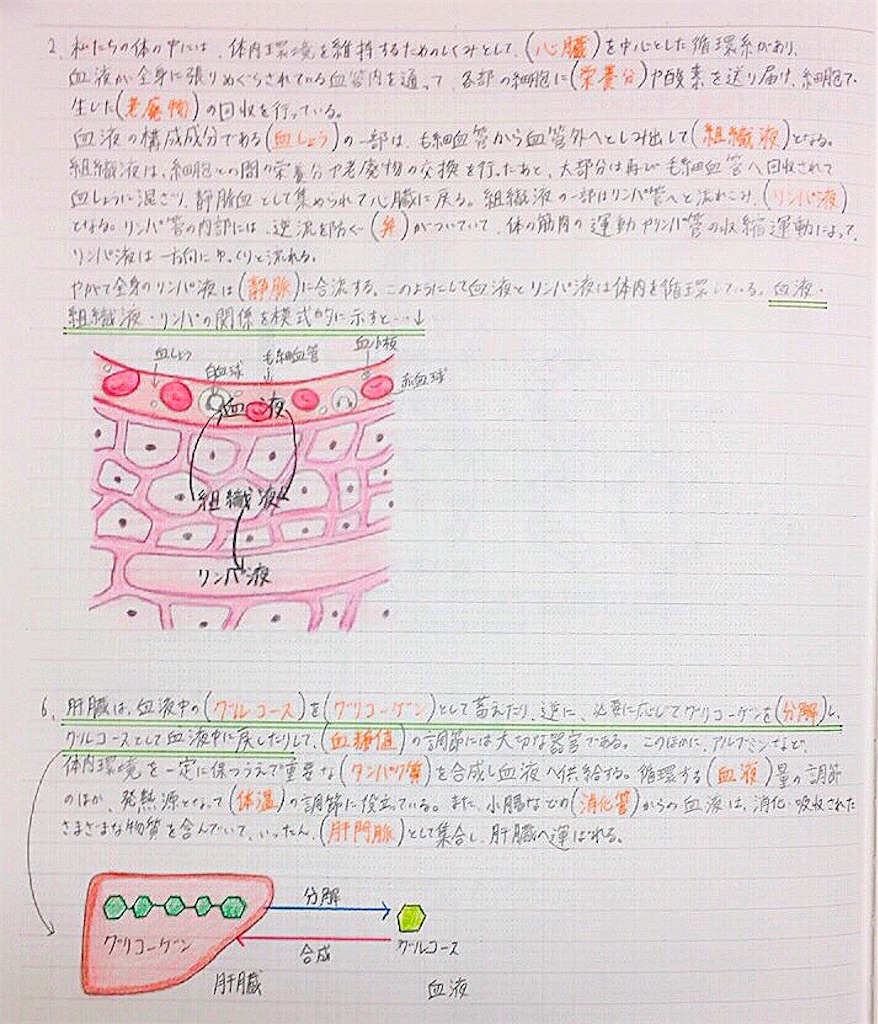 2. 私たちの体の中には、体内環境を維持するためのしくみとして、(心臓)を中心とした循環系があり、
血液が全身に張りめぐらされている血管内を通って、各部の細胞に(栄養分)や酸素を送り届け、細胞で
生じた(老廃物)の回収を行っている。
血液の構成成分である(血しょう)の一部は、毛細血管から血管外へとしみ出して(組織液)となる。
組織液は、細胞との間の栄養分や老廃物の交換を行ったあと、大部分は再び毛細血管へ回収されて
血しょうに混ざり、静脈血として集められて心臓に戻る。組織液の一部はリンパ管へと流れこみ、(リンパ液)
となる。リンパ管の内部には、逆流を防ぐ(弁)がついていて、体の筋肉の運動やリンパ管の収縮運動によって、
リンパ液は一方向にゆっくりと流れる。
やがて全身のリンパ液は(静脈)に合流する。このようにして血液とリンパ液は体内を循環している。血液・
組織液・リンパの関係を模式的に示すと…↓
血しょう 白血球 毛細血管 血小板
赤血球
血液
組織液
リンパ液
6. 肝臓は、血液中の(グルコース)を(グリコーゲン)として蓄えたり、逆に、必要に応じてグリコーゲンを(分解)し、
グルコースとして血液中に戻したりして、(血糖値)の調節には大切な器官である。このほかに、アルブミンなど、
体内環境を一定に保つうえで重要な(タンパク質)を合成し血液へ供給する。循環する(血液)量の調節
のほか、発熱源となって(体温)の調節に役立っている。また、小腸などの(消化管)からの血液は、消化・吸収された
さまざまな物質を含んでいて、いったん、(肝門脈)として集合し、肝臓へ運ばれる。
分解
グリコーゲン
グルコース
合成
肝臓
血液